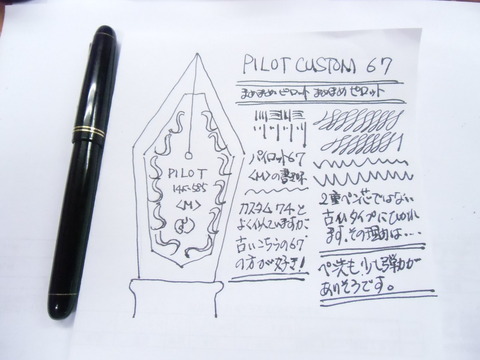 PILOT CUSTOM 67
まめまめピロット まめまめピロット
パイロット67
<M>の書き味
カスタム74と
よくにていますが、
古いこちらの67
の方が好き!
2重ペン芯ではない
古いタイプにひかれ
ます。その理由は…
ペン先も少し弾力が
ありそうです。
PILOT
14K-585
<M>